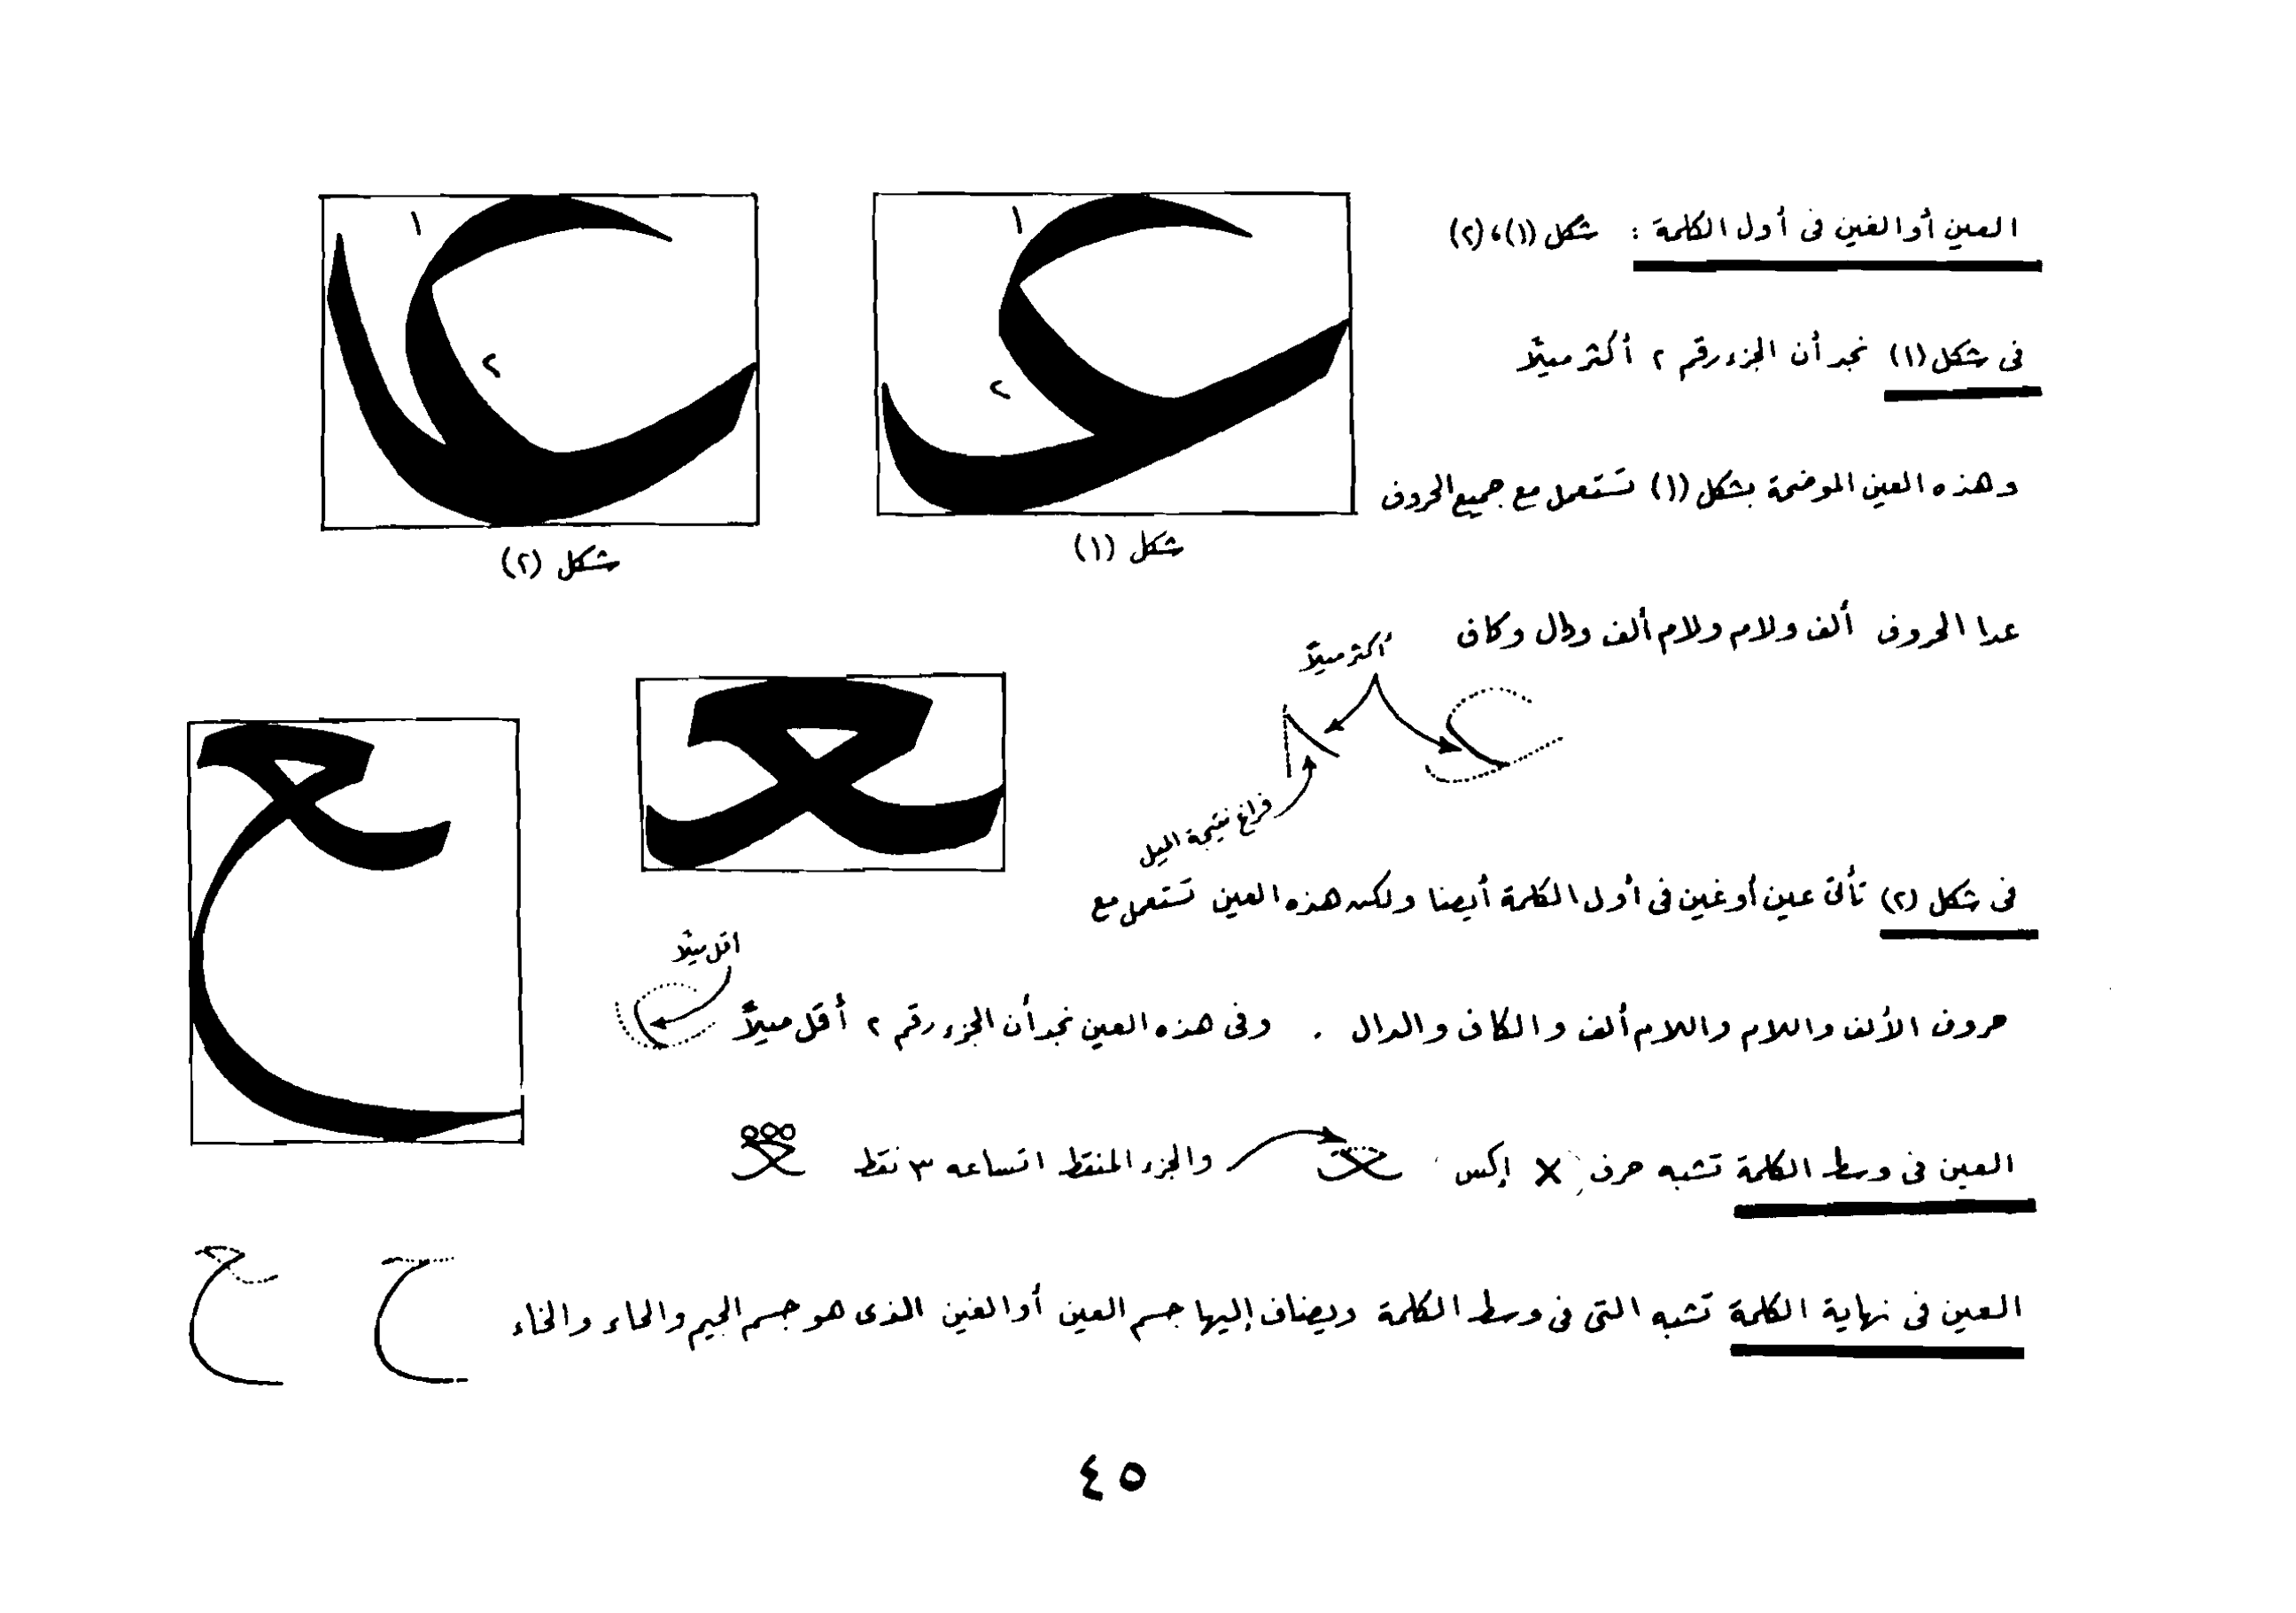 العين أو الغين فى أول الكلمة : شكل (١)،(٢)
١
١
فى شكل (١) نجد أن الجزء رقم ٢ أكثر ميلًا
٢
٢
وهذه العين الموضحة بشكل (١) تستعمل مع جميع الحروف
شكل (١)
شكل (٢)
عدا الحروف ألف ولام ولام ألف ودال وكاف
أكثر ميلًا
فراغ نتيجة الميل
فى شكل (٢) تأتى عين أو غين فى أول الكلمة أيضا ولكن هذه العين تستعمل مع
اقل ميلًا
حروف الألف واللام واللام ألف والكاف والدال . وفى هذه العين نجد أن الجزء رقم ٢ أقل ميلًا
العين فى وسط الكلمة تشبه حرف X إكس والجزء المنقط اتساعه ٣ نقط
العين فى نهاية الكلمة تشبه التى فى وسط الكلمة ويضاف إليها جسم العين أو الغين الذى هو جسم الجيم والحاء والخاء
٤٥